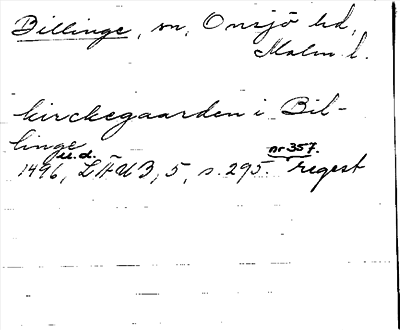 Billinge, sn, Onsjö hd,
Malm. l.
kirckegaarden i Bil-
linge
1496, u.d. LÄUB, 5, s. 295. nr 357. regest